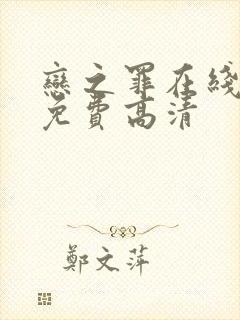 戀之罪在綫
免費高清
鄭文萍